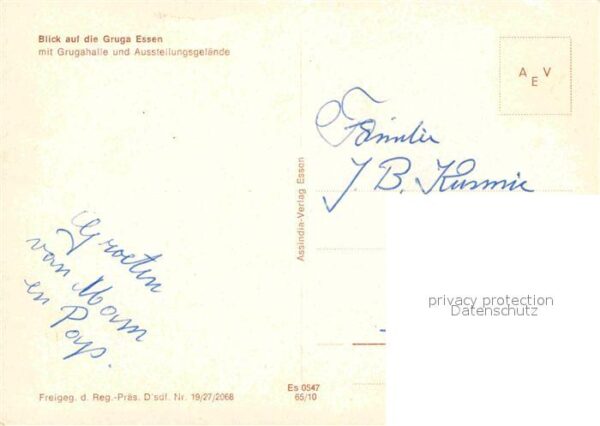 Blick auf die Gruga Essen
mit Grugahalle und Ausstellungsgelände
A E V
Familie
J. B. Kusmic
Assindia-Verlag Essen
Groeten
van Mam
en Paps.
privacy protection
Datenschutz
Es 0547
65/10
Freigeg. d. Reg.-Präs. D'sdf. Nr. 19/27/2068